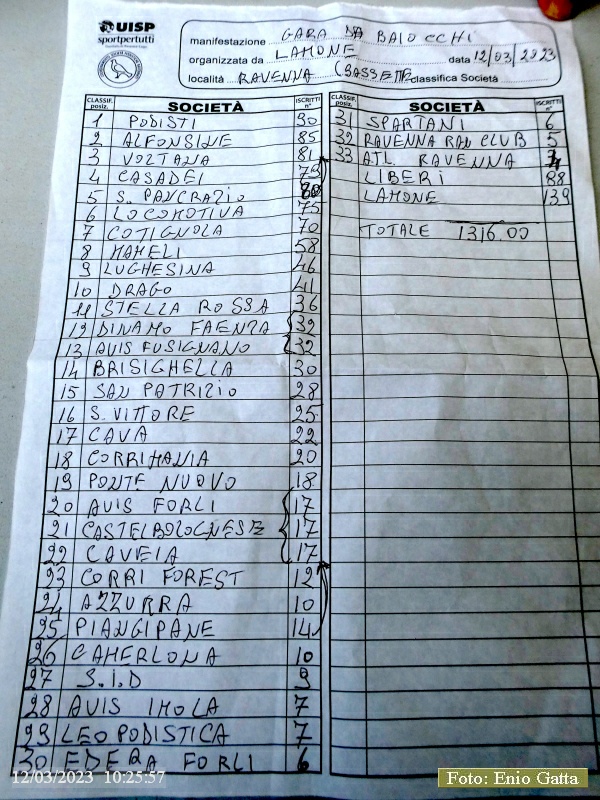 UISP
sportpertutti
manifestazione GARA DA BAIOCCHI
organizzata da LAMONE data 12/03/2023
località RAVENNA (BASSETTE classifica Società
CLASSIF. posiz. SOCIETÀ ISCRITTI n°
1 PODISTI 90
2 ALFONSINE 85
3 VOLTANA 81
4 CASADEI 79
5 S. PANCRAZIO 80
6 LOCOMOTIVA 75
7 COTIGNOLA 70
8 MAMELI 58
9 LUGHESINA 46
10 DRAGO 41
11 STELLA ROSSA 36
12 DINAMO FAENZA 32
13 AVIS FUSIGNANO 32
14 BRISIGHELLA 30
15 SAN PATRIZIO 28
16 S. VITTORE 25
17 CAVA 22
18 CORRIMANIA 20
19 PONTE NUOVO 18
20 AVIS FORLI 17
21 CASTELBOLOGNESE 17
22 CAVEIA 17
23 CORRI FOREST 12
24 AZZURRA 10
25 PIANGIPANE 14
26 CAMERLONA 10
27 S.I.D 9
28 AVIS IMOLA 7
29 LEOPODISTICA 7
30 EDERA FORLI 6
CLASSIF. posiz. SOCIETÀ ISCRITTI n°
31 SPARTANI 6
32 RAVENNA RUN CLUB 5
33 ATL. RAVENNA
LIBERI 88
LAMONE 139
TOTALE 1316.00
12/03/2023 10:25:57
Foto: Enio Gatta